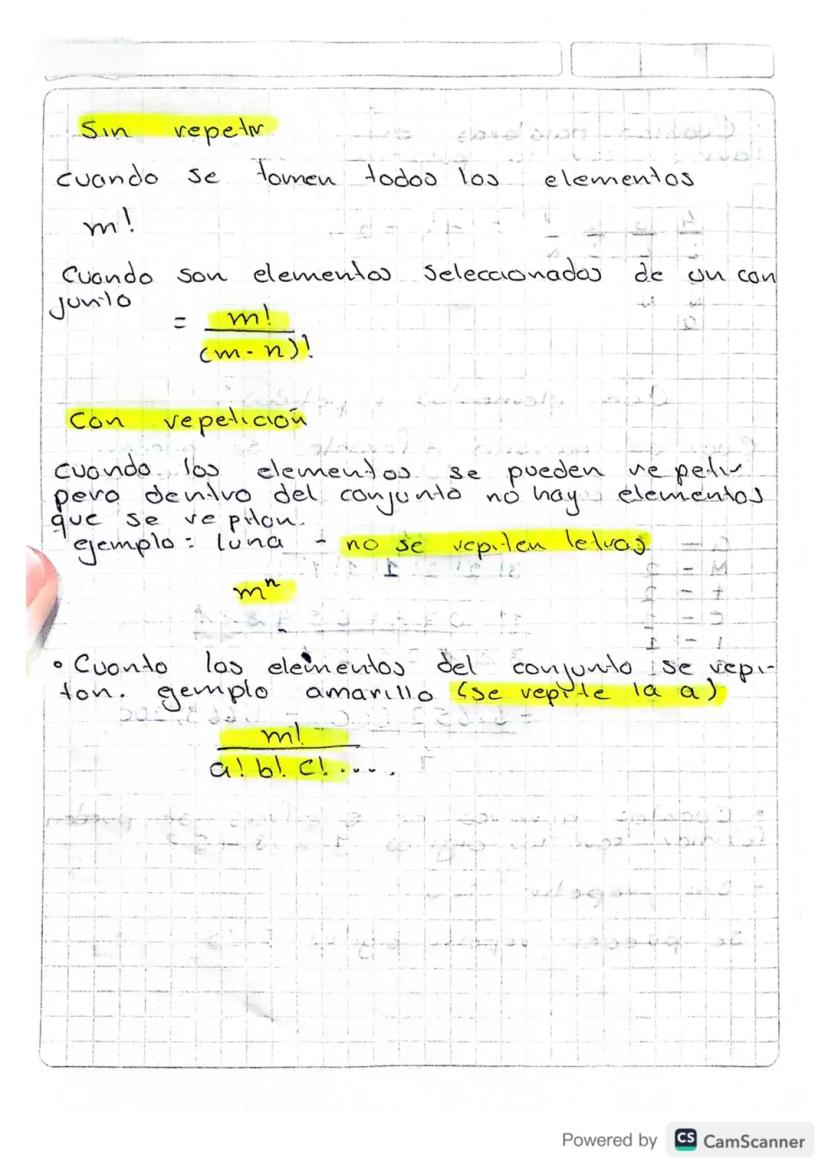 Sin repetir
cuando se tomen todos los elementos
m!
Cuando son elementos seleccionados de un con
junto
= m!
(m - n)!
Con repetición
cuando los elementos se pueden repetir
pero dentro del conjunto no hay elementos
que se repitan.
ejemplo: luna - no se repiten letras
mⁿ
• Cuanto los elementos del conjunto se repi-
tan. ejemplo amarillo (se repite la a)
m!
a! b! c! ....
Powered by CS CamScanner